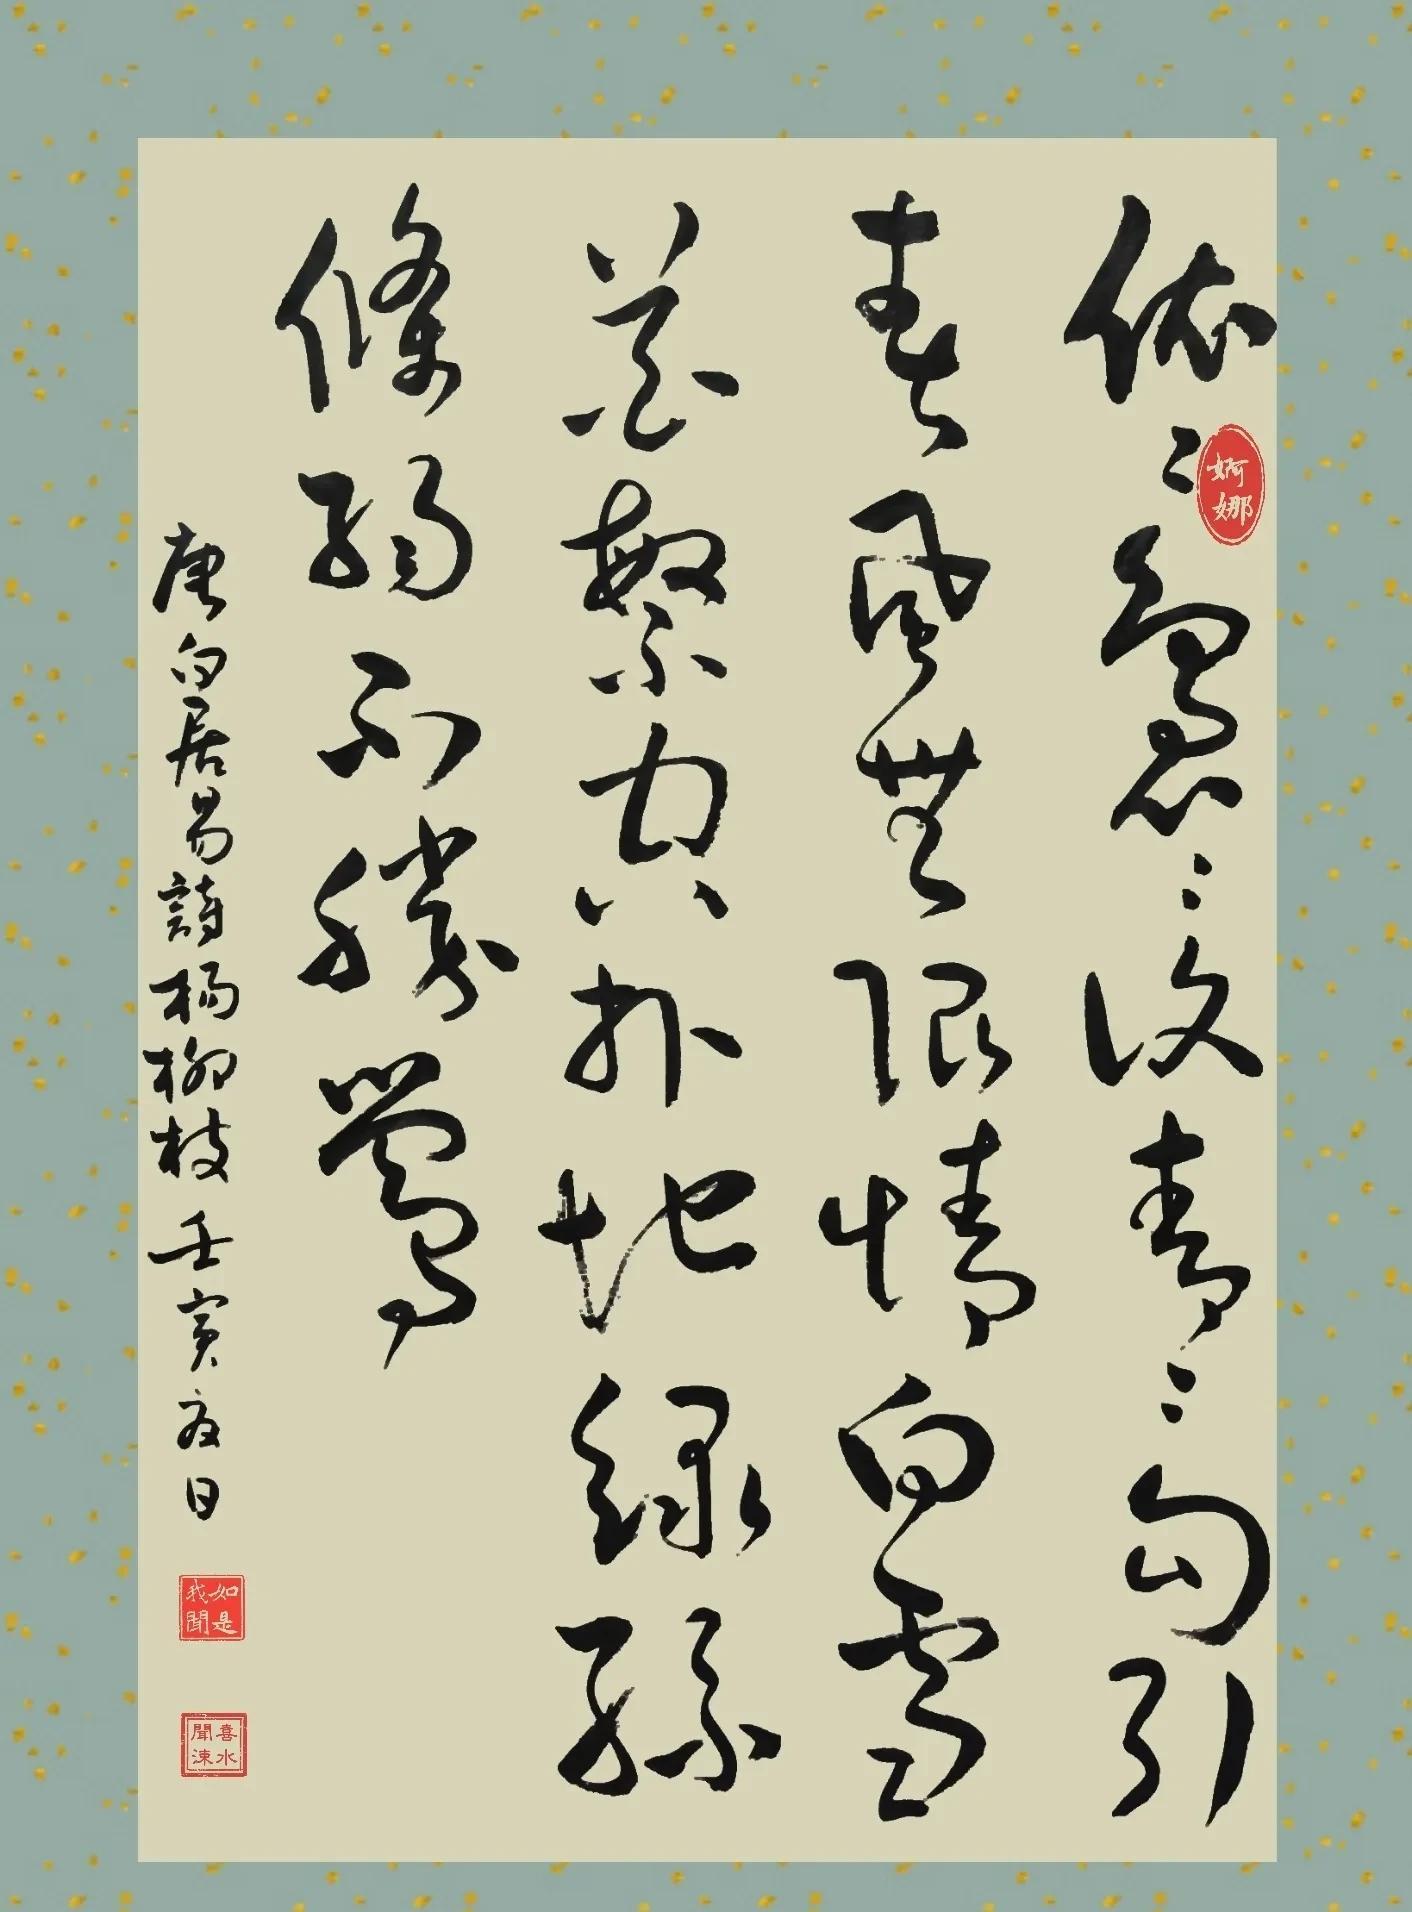 依〻裊〻復青〻勾引
春風無限情白雪
花繁空扑地綠絲
條弱不勝鶯
唐白居易詩楊柳枝壬寅夏日
婀娜
如是我聞
喜水聞涑